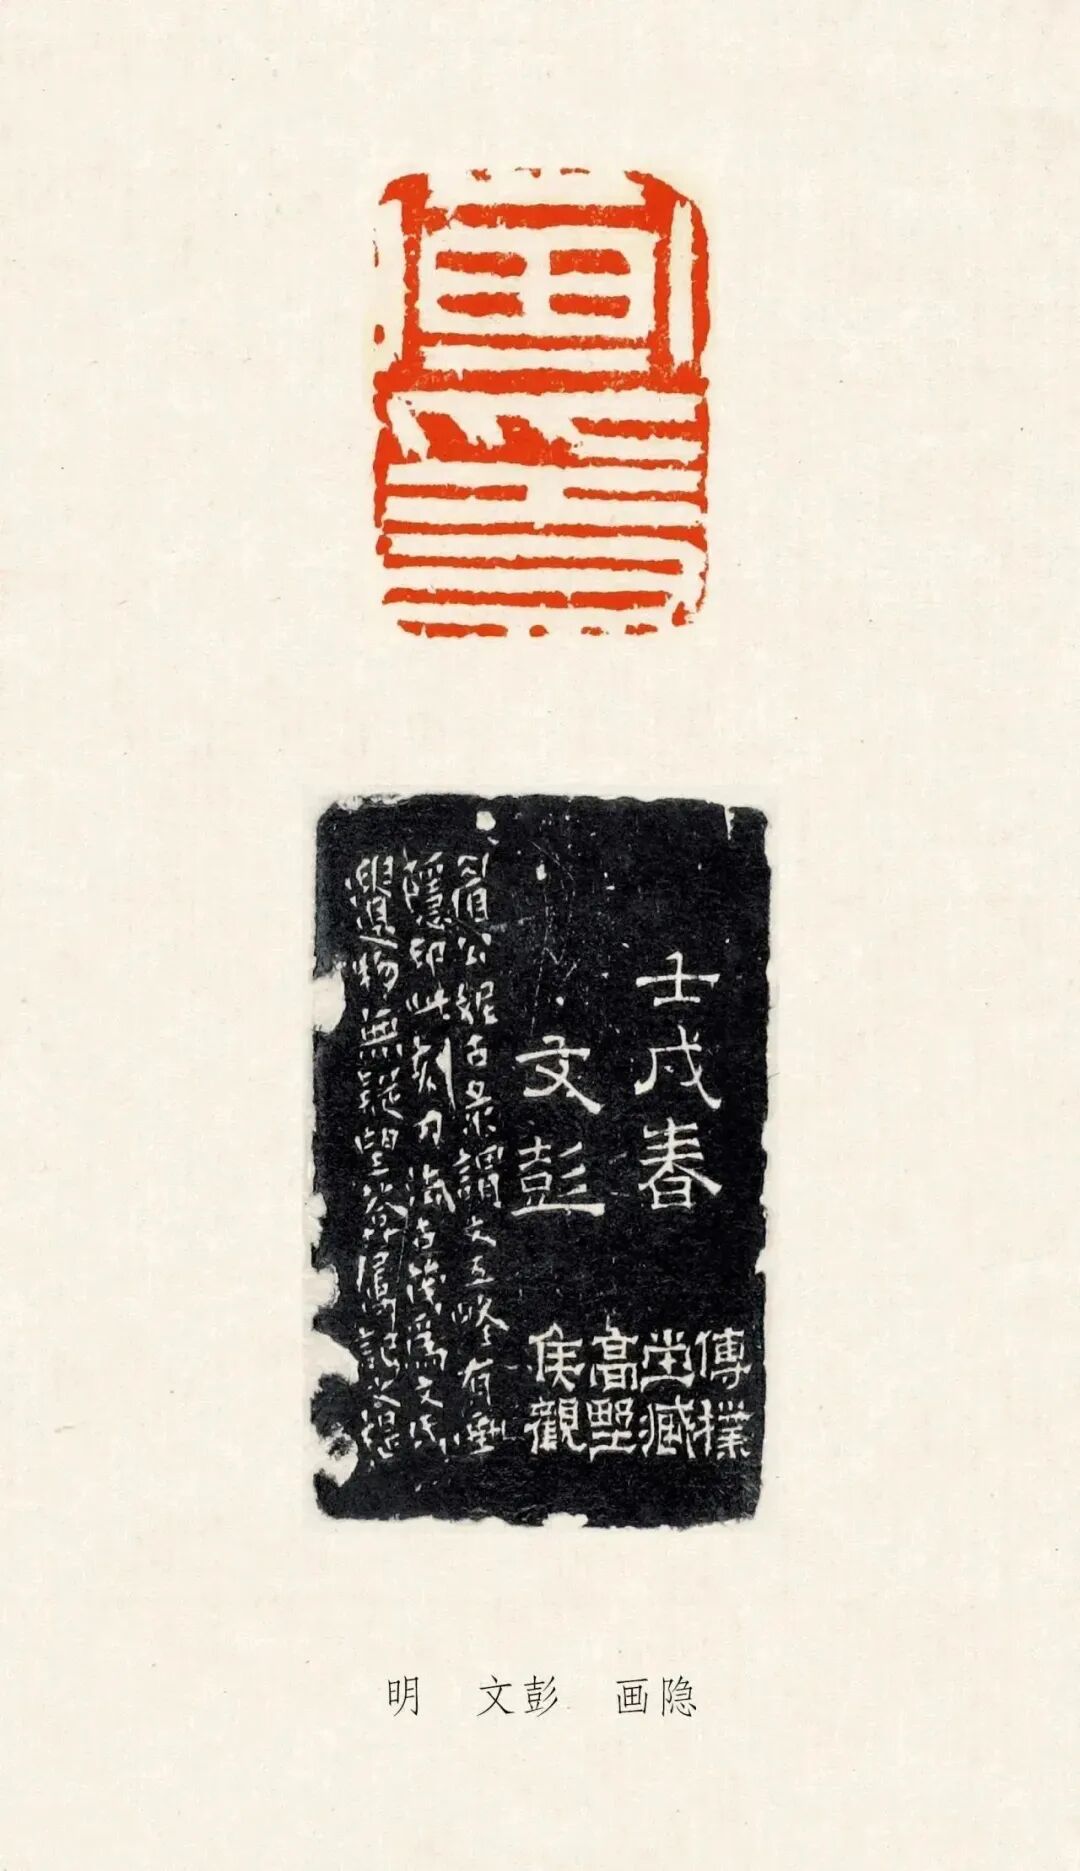 壬戌春
文彭
傳樸
堂藏
高野
侯觀
眉公妮古彔謂文五峰有畫
隱印此刻刀法古茂爲文氏
遺物無疑
明 文彭 画隐